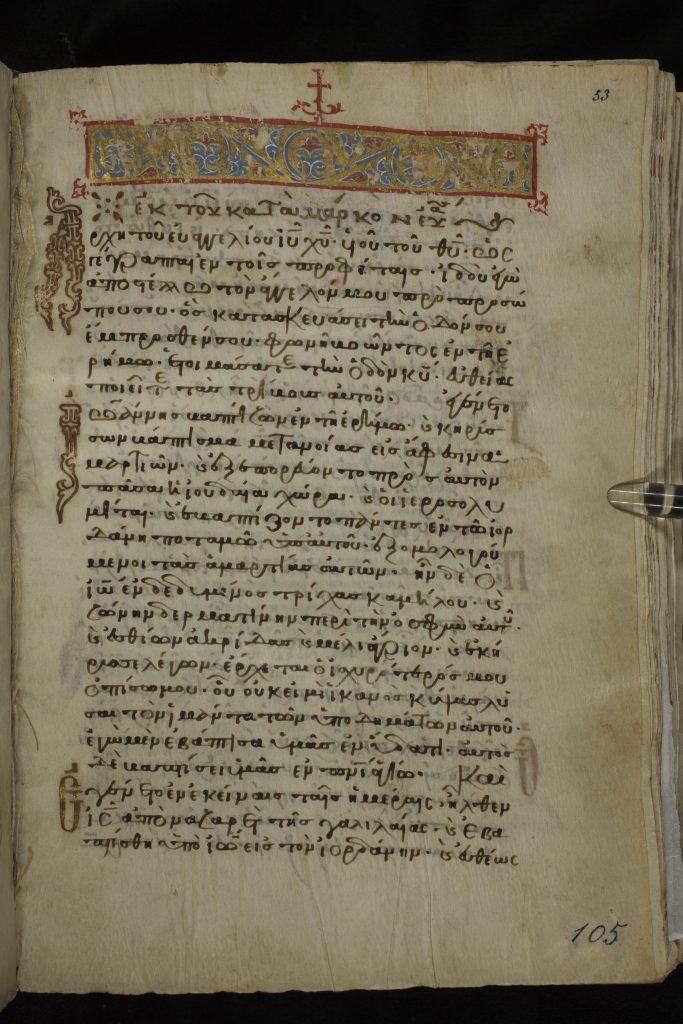 53
ἐκ τοῦ κατὰ μάρκον εὐα
ρχὴ τοῦ εὐαγγελίου ιυ χυ υἱοῦ τοῦ θυ· ὡς
γέγραπται ἐν τοῖς προφήταις· ἰδοὺ ἐγὼ
ἀποστέλλω τὸν ἄγγελόν μου πρὸ προσώ
που σου· ὃς κατασκευάσει τὴν ὁδόν σου
ἔμπροσθέν σου· φωνὴ βοῶντος ἐν τῇ ἐ
ρήμω· ἑτοιμάσατε τὴν ὁδὸν κυ· εὐθείας
ποιεῖτε τὰς τρίβους αὐτοῦ· ἐγένετο
ἰωάννης βαπτίζων ἐν τῇ ἐρήμω· καὶ κηρύσ
σων βάπτισμα μετανοίας εἰς ἄφεσιν ἁ
μαρτιῶν· καὶ ἐξεπορεύοντο πρὸς αὐτὸν
πᾶσα ἡ ἰουδαία χώρα· καὶ οἱ ἱεροσολυ
μῖται· καὶ ἐβαπτίζοντο πάντες ἐν τῶ ἰορ
δάνη ποταμῶ ὑπ αὐτοῦ· ἐξομολογού
μενοι τὰς ἁμαρτίας αὐτῶν· ἦν δὲ ὁ
ἰω ἐνδεδυμένος τρίχας καμήλου· καὶ
ζώνην δερματίνην περὶ τὴν ὀσφὺν αὐτου·
καὶ ἐσθίων ἀκρίδας καὶ μέλι ἄγριον· καὶ ἐκή
ρυσσε λέγων· ἔρχεται ὁ ἰσχυρότερός μου
ὀπίσω μου· οὗ οὐκ εἰμὶ ἱκανὸς κύψας λῦ
σαι τὸν ἱμάντα τῶν ὑποδημάτων αὐτοῦ·
ἐγὼ μὲν ἐβάπτισα ὑμᾶς ἐν ὕδατι· αὐτὸς
δὲ βαπτίσει ὑμᾶς ἐν πνι ἁγίω· Καὶ
ἐγένετο ἐν ἐκείναις ταῖς ἡμέραις· ἦλθεν
ις ἀπὸ ναζαρὲτ τῆς γαλιλαίας· καὶ ἐβα
πτίσθη ὑπὸ ἰω εἰς τὸν ἰορδάνην· καὶ εὐθέως
105